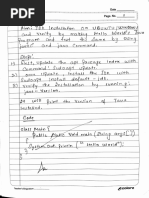 Page No.
Aim: JDK Installation on Ubuntu/Windows
and verify by writing Hello World's Java
Program and test the same by using
javac and java Command.
Steps:
First, Update the apt Package index with
Command: $ sudo apt update
update, Install the JDK with
$ sudo install default-jdk
verify the installation by running
javac - version
print the version of Java
Code
Class Main {
Public static void main (String args[])
{
System.out.println ("Hello World");
}
}